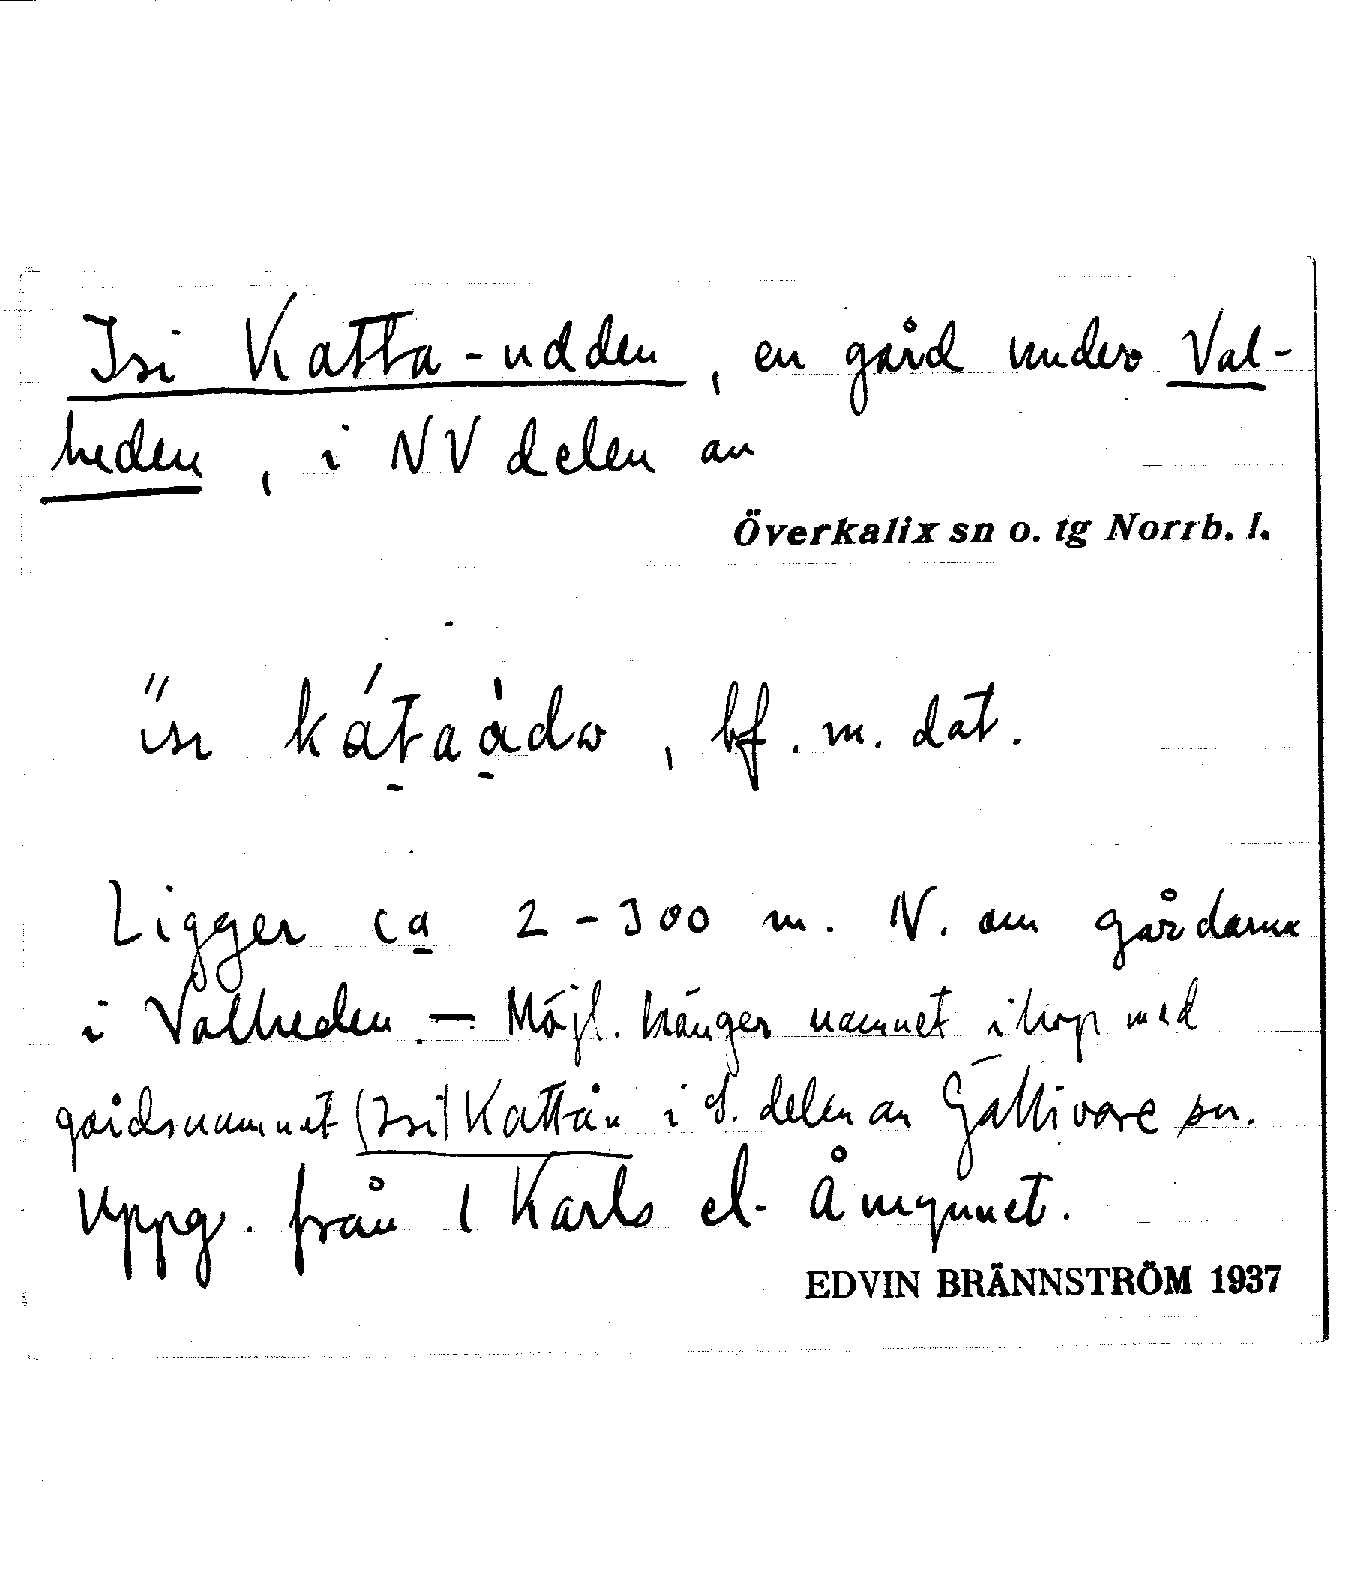 Isi Katta-udden, en gård under Val-
heden, i NV delen av
Överkalix sn o. tg Norrb. l.
, bf. m. dat.
Ligger ca 2-300 m. N. om gårdarna
i Valheden. — Möjl. hänger namnet ihop med
gårdsnamnet (Isi) Kattån i S. delen av Gällivare sn.
Uppg. från 1 Karls el. Åmynnet.
EDVIN BRÄNNSTRÖM 1937